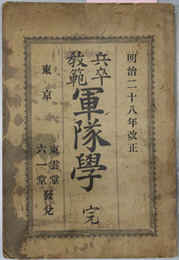 明治二十八年改正
兵卒教範
軍隊學 完
東京
東雲堂
六一堂
發兌